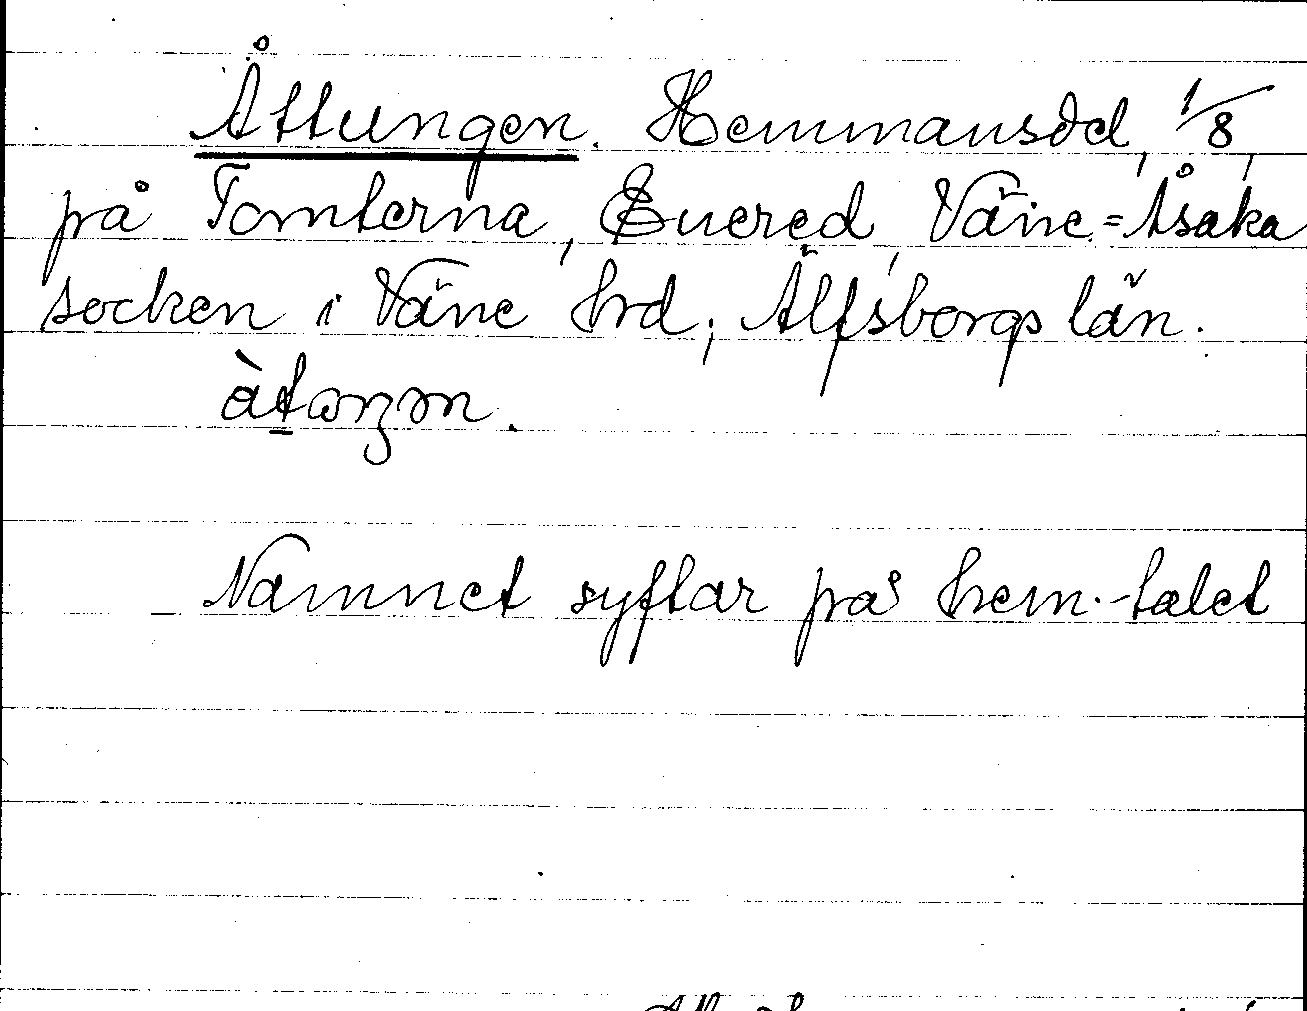 Åttungen. Hemmansdel, 1/8,
på Tomterna, Euered, Väne-Åsaka
socken i Väne hrd, Älfsborgs län.
Namnet syftar på hem.-talet